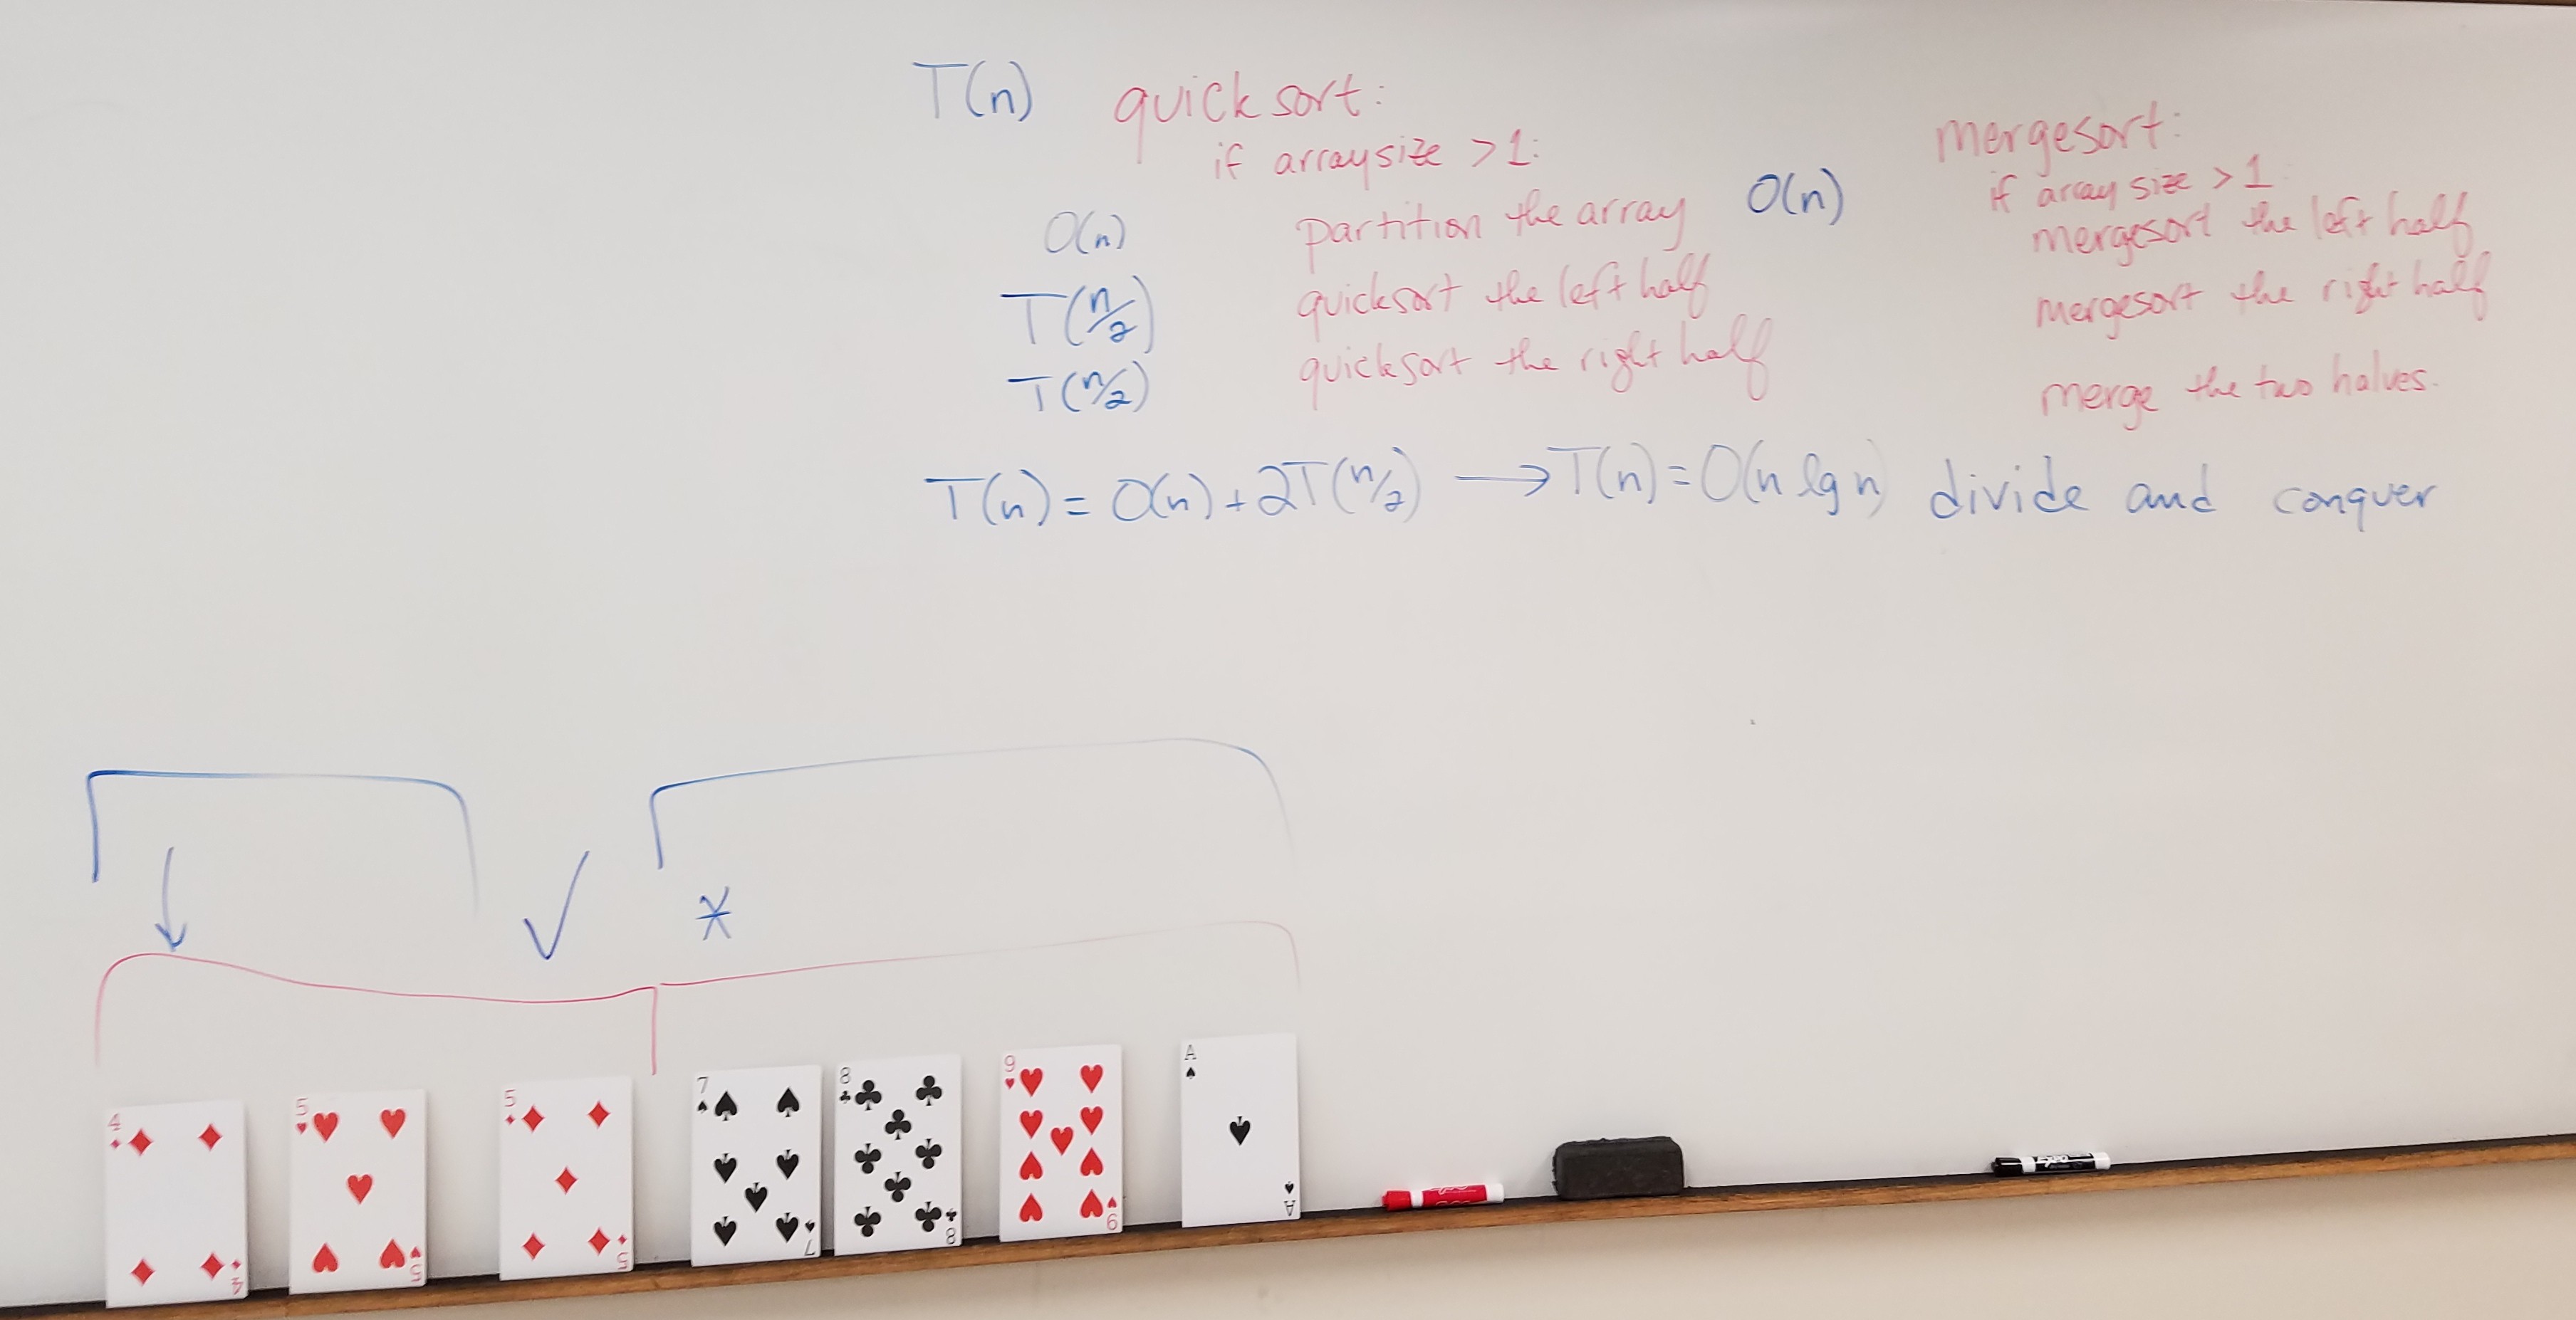 T(n) quicksort:
if arraysize > 1:
O(n) partition the array
T(n/2) quicksort the left half
T(n/2) quicksort the right half
T(n) = O(n) + 2T(n/2) → T(n) = O(n lg n) divide and conquer
mergesort:
if array size > 1:
O(n) mergesort the left half
mergesort the right half
merge the two halves.
✓ *
4 5 5 7 8 9 A
4 5 5 7 8 9 A
EXPO